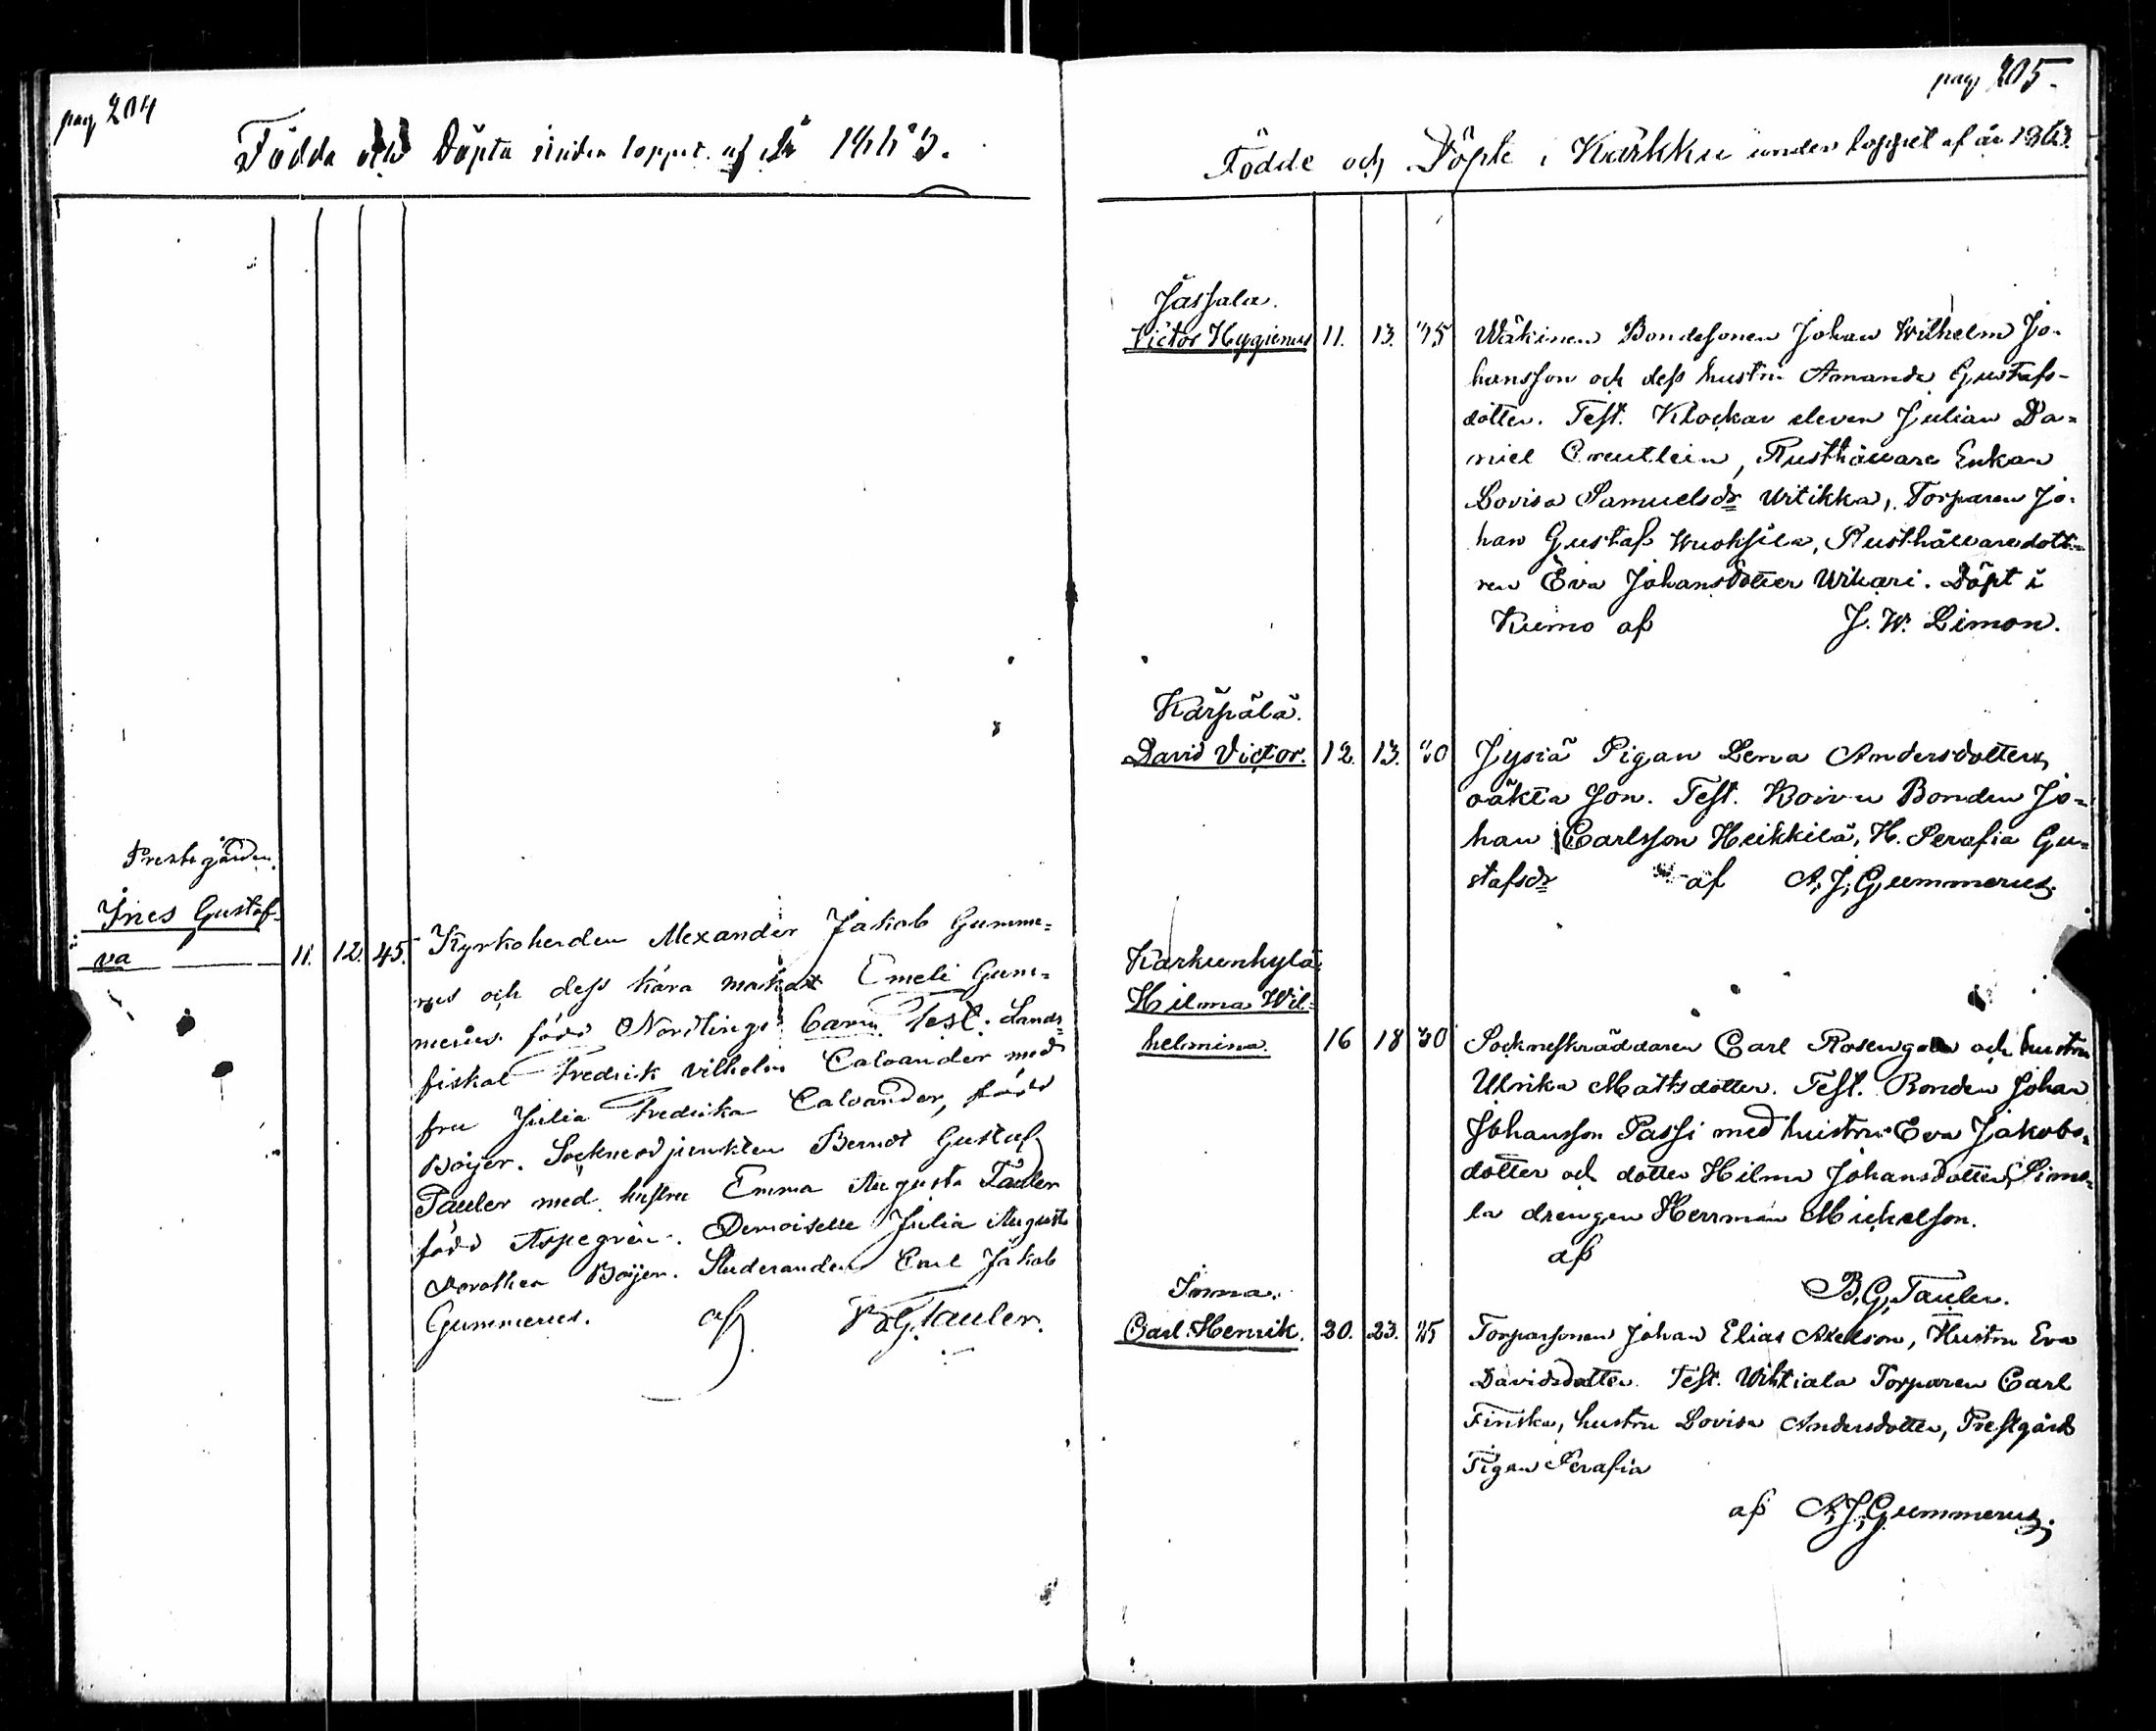 pag 204
Födda och Döpta under loppet af år 1863.
Prestegården.
Ines Gustaf-
va 11. 12. 45.
Kyrkoherden Alexander Jakob Gumme=
rus och dess kära maka Emeli Gum=
merus född Nordlings barn. Test. Lands=
fiskal Fredrik Vilhelm Calvander med
fru Julia Fredrika Calvander, född
Böijer. Sockneadjunkten Berndt Gustaf
Tauler med hustru Emma Augusta Tauler
född Aspegrén. Demoiselle Julia Augusta
Dorothea Böijer. Studeranden Emil Jakob
Gummerus. af B.G. Tauler.
pag 205.
Födde och Döpte i Karkku under loppet af år 1863.
Jassala.
Victor Hyginus 11. 13. 25
Wäkinen Bondesonen Johan Wilhelm Jo-
hansson och dess hustru Amanda Gustafs-
dotter. Test. Klockar eleven Julian Da=
niel Creutlein, Rusthållare Enkan
Lovisa Samuelsdr Witikka, Torparen Jo-
han Gustaf, Rusthållaredott-
ren Eva Johansdotter Wihari. Döpt i
Kumo af J. W. Limon.
Kärpälä.
David Victor. 12. 13. 20
Jysiä Pigan Lena Andersdotters
oäkta Son. Test. Koivu Bonden Jo=
han Carlsson Heikkilä, H. Serafia Gu=
stafsdr af A. J. Gummerus.
Karkunkylä
Hilma Wil=
helmina. 16 18 30
Sockneskräddaren Carl Rosengren och hustru
Ulrika Mattsdotter. Test. Bonden Johan
Johansson Passi med hustru Eva Jakobs=
dotter och dotter Hilma Johansdotter, Sime=
la drengen Herrman Michelson.
af
B. G. Tauler.
Inna.
Carl Henrik. 20. 23. 25
Torparsonen Johan Elias Axelson, Hustru Eva
Davidsdotter. Test. Wihtiala Torparen Carl
Finska, hustru Lovisa Andersdotter, Prestgård
Pigan Serafia
af A. J. Gummerus.